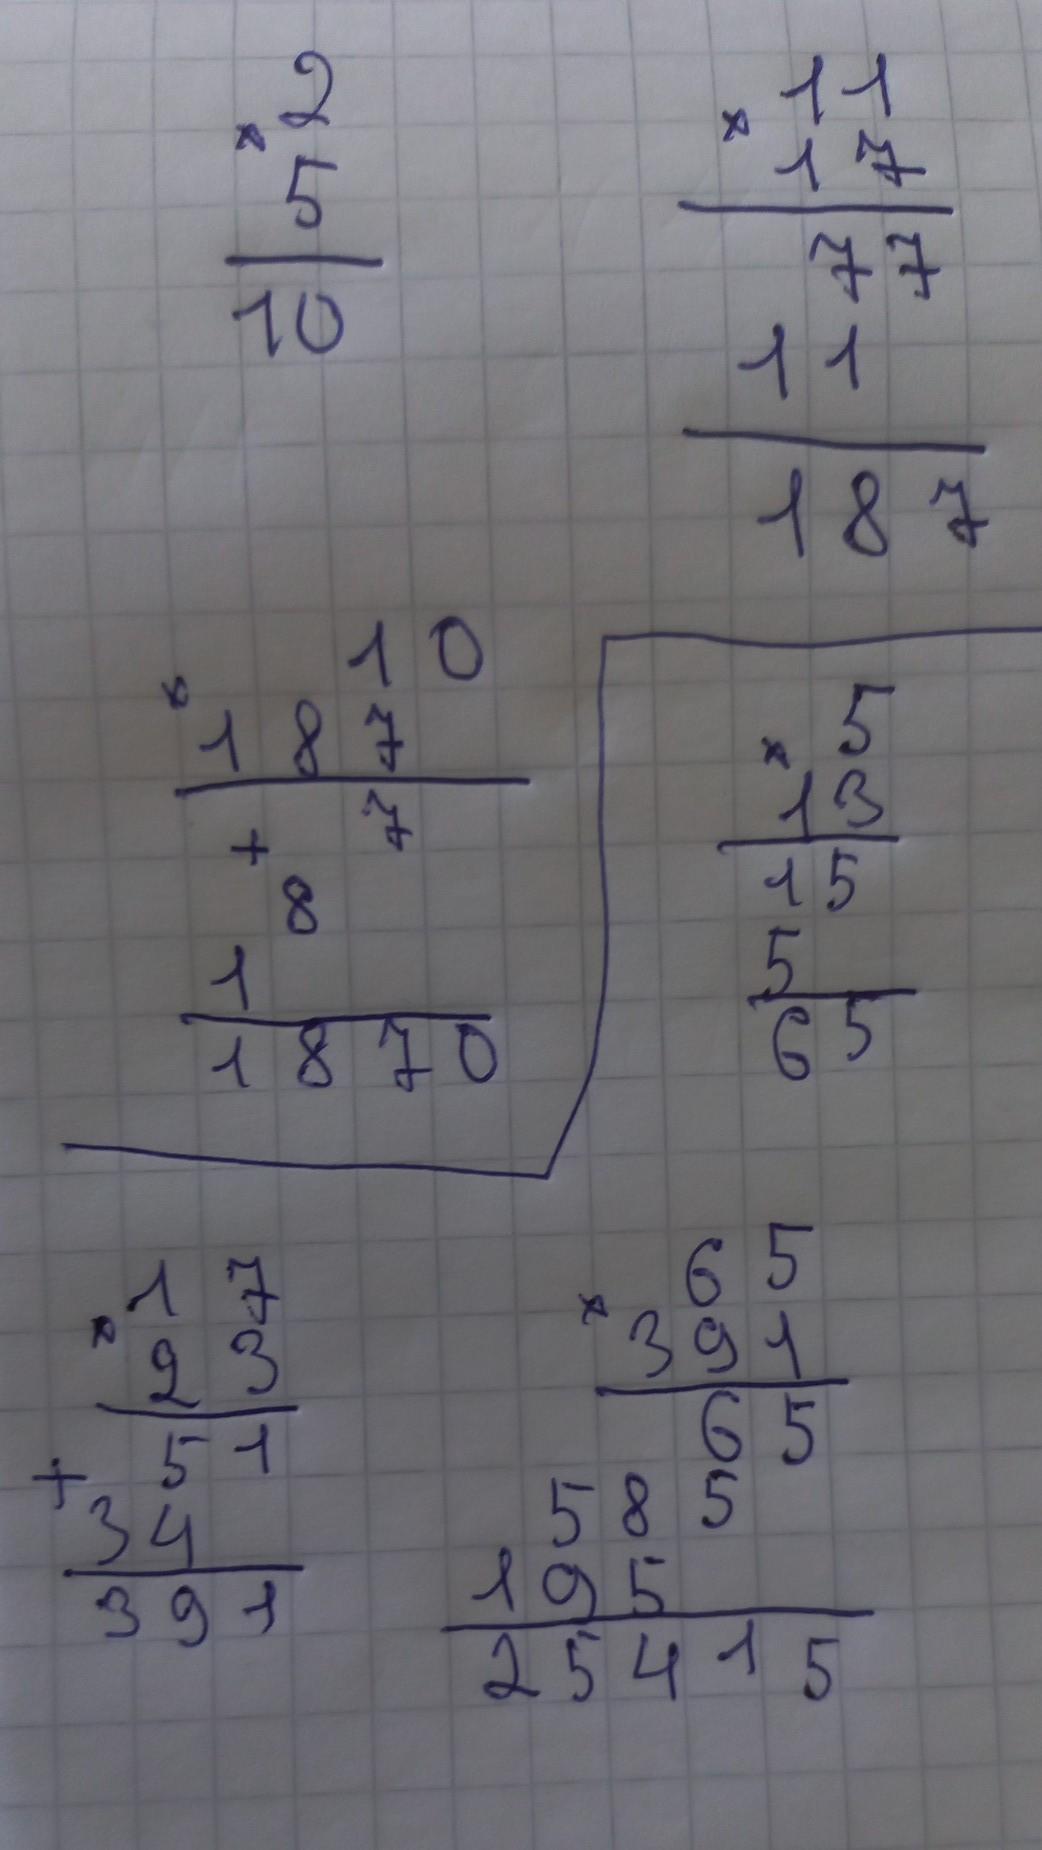 × 2
5
10
× 11
17
77
11
187
× 10
187
7
+
8
1
1870
× 5
13
15
5
65
× 17
23
51
+
34
391
× 65
391
65
585
195
25415